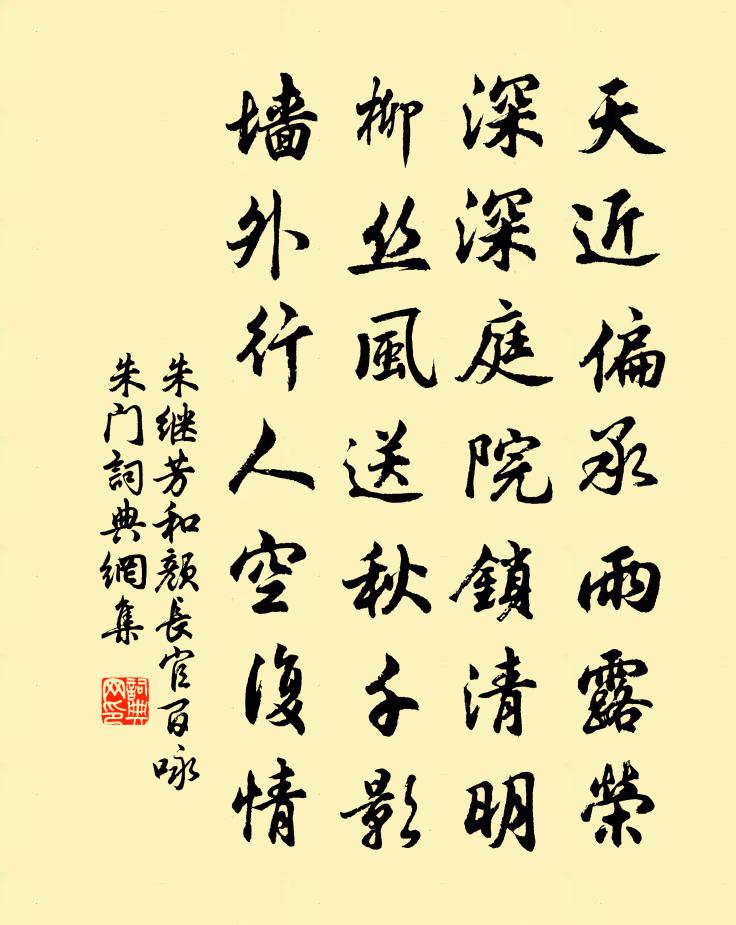 天近偏承雨露榮
深深庭院鎖清明
柳丝風送秋千影
墙外行人空復情
朱继芳和顏長官百咏
朱门詞典網集
詞典
网印